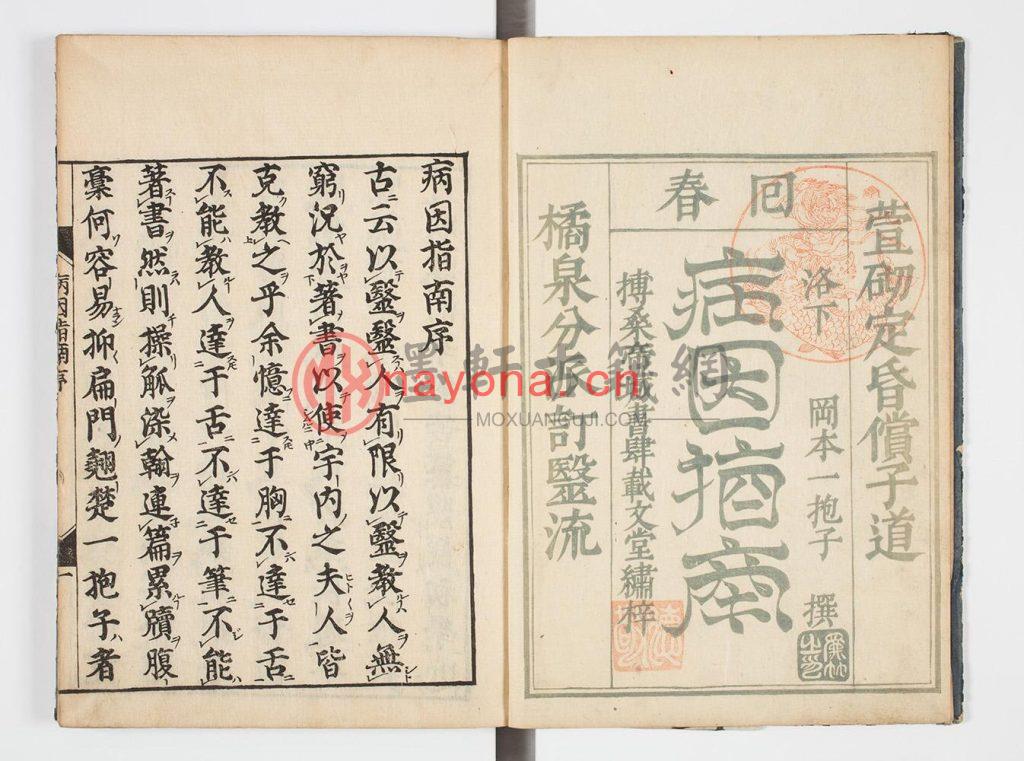 囘春
萱砌定昏償子道
洛下 岡本一抱子 撰
病因指南
搏桑城書肆載文堂繡梓
橘泉分派討毉流
病因指南序
古云以毉毉人有限以毉教人無
窮況於著書以使宇内之夫人皆
克教之乎余憶達于胸不達于舌
不能教人達于舌不達于筆不能
著書然則操觚染翰連篇累牘腹
稾何容易抑扁門翹楚一抱子者
病因指南序 一
墨軒古籍網
nayona.cn
MOXUANGUJI.COM